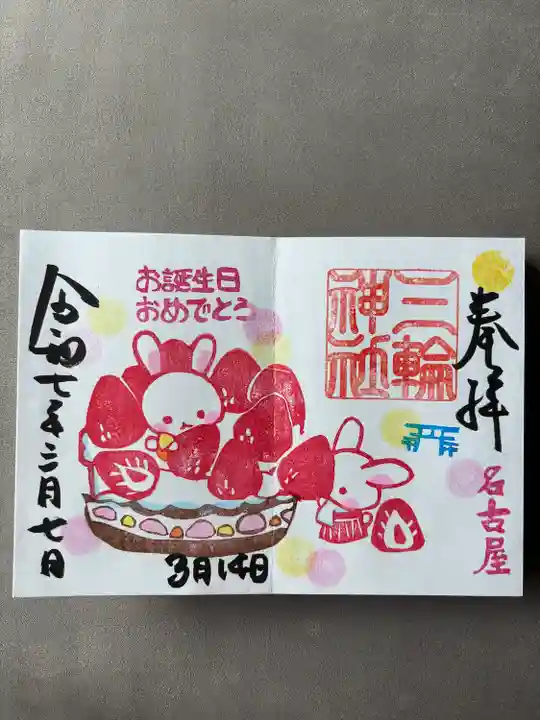 奉拝
名古屋
三輪
神社
お誕生日
おめでとう
3月14日
令和七年三月七日